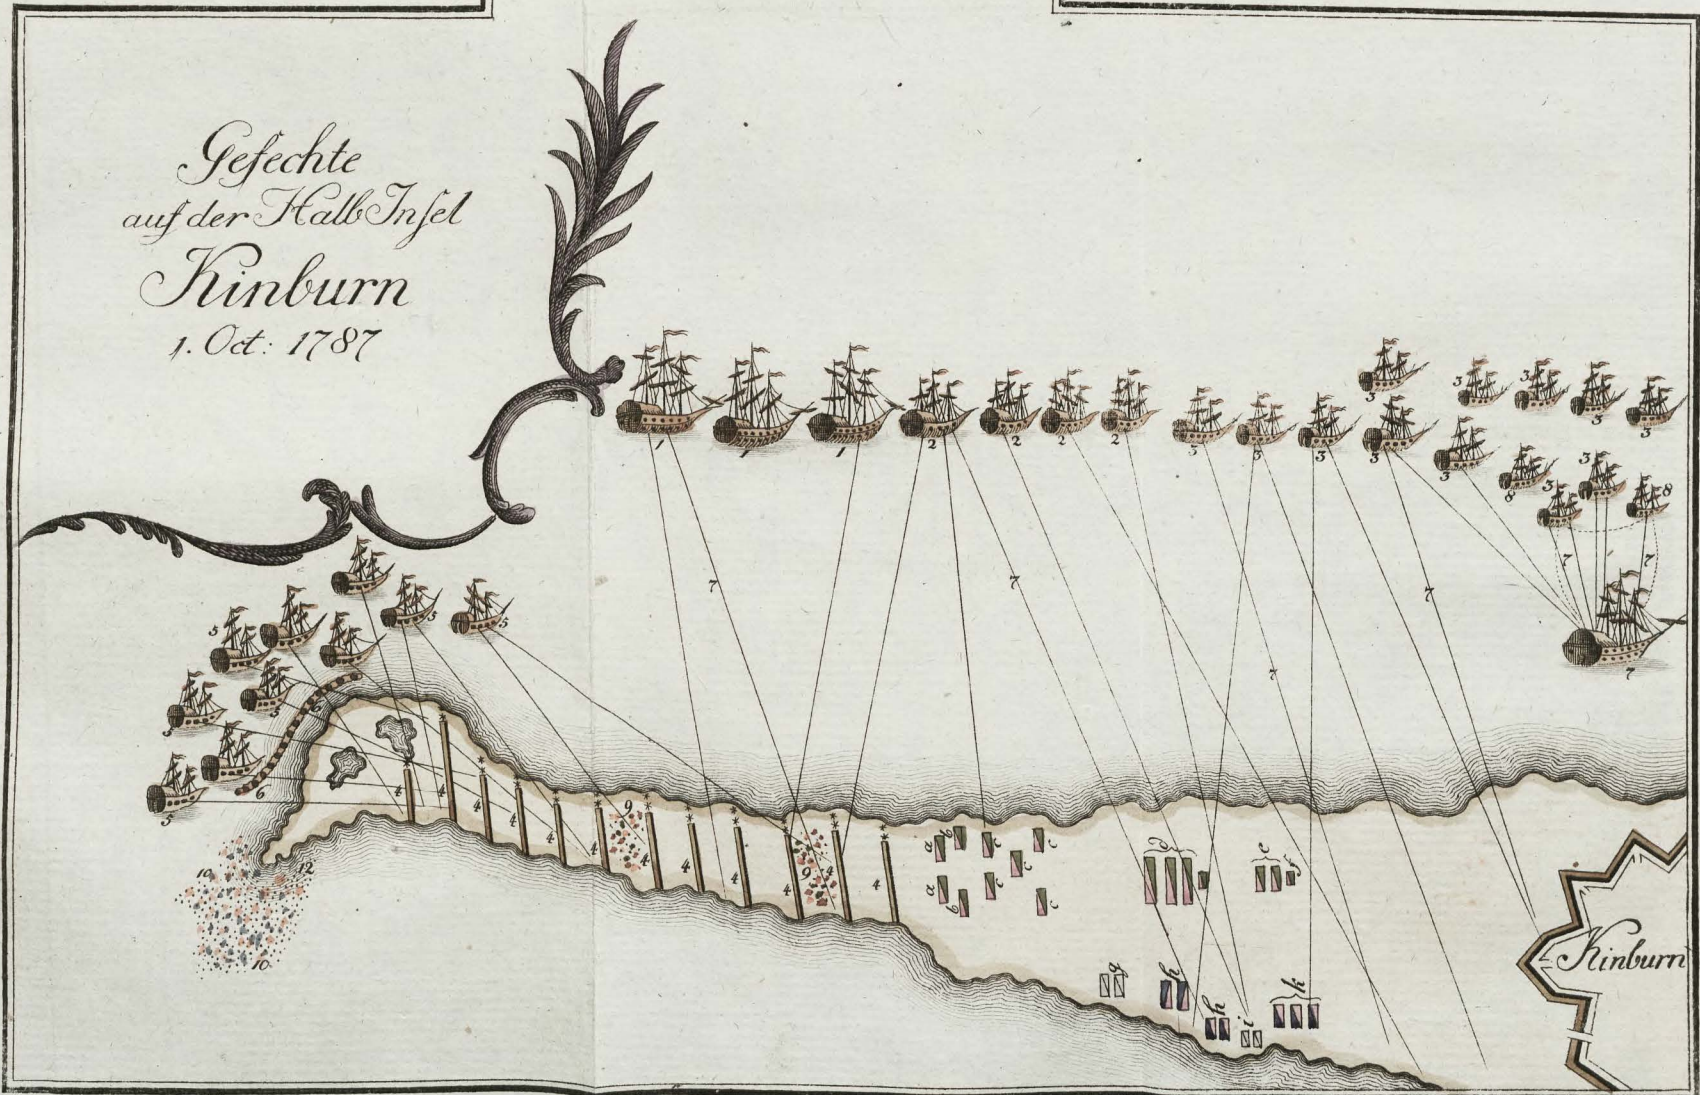 Gefechte
auf der Halb Insel
Kinburn
1. Oct: 1787
3 3 3 3 3
1 1 1 2 2 2 2 3 3 3 3 3 8 3 3 8
7 7 7 7 7 7
7
5 5 5
5 5
5 6
5
4 4 4 4 4 4 9 4 4 4 4 9 4 4
10 12
10
a b c c c
a b c c
d e f
g h h i k
Kinburn